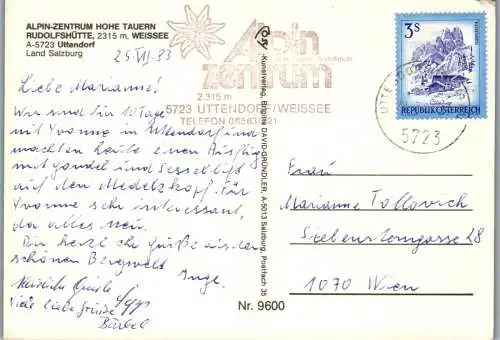 ALPIN-ZENTRUM HOHE TAUERN
RUDOLFSHÜTTE, 2315 m, WEISSEE
A-5723 Uttendorf
Land Salzburg
25. VII. 83
Liebe Marianne!
Wir sind für 10 Tage
mit Yvonne in Uttendorf und
machten heute einen Ausflug
mit Gondel und Sessellift
auf den Medelzkopf. Für
Yvonne sehr interessant,
da alles neu.
Dir herzliche Grüße aus der
schönen Bergwelt Inge.
Herzliche Grüße Sepp
Viele liebe Grüße
Bärbel
Alpin
zentrum
2.315 m
5723 UTTENDORF/WEISSEE
TELEFON 06563/221
Kunstverlag, Edition DAVID-GRÜNDLER, A-5013 Salzburg, Postfach 35
Nr. 9600
3S
REPUBLIK ÖSTERREICH
UTTENDORF
5723
Frau
Marianne Tollovich
Siebensterngasse 28
1070 Wien